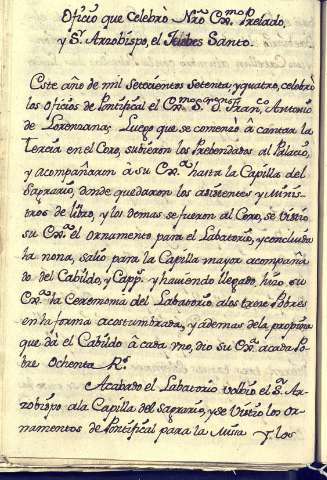 Oficio que celebrò Nrô Exmo Prelado,
y Sr. Arzobispo, el Juebes Santo.
Este año de mil Setecientos Setenta, y quatro, celebrò
los oficios de Pontifical el Exmo Sr. Dn. Franco. Antonio
de Lorenzana, Luego que se comenzò à cantar la
Tercia en el Coro, subieron los Prebendados al Palacio,
y acompañaron à su Exa. hasta la Capilla del
Sagrario, donde quedaron los asistentes y Minis-
tros de libro, y los demas se fueron al Coro, se vistio
su Exa. el ornamento para el Labatorio, y concluida
la nona, saliò para la Capilla mayor acompaña
do del Cabildo, y Capp. y haviendo llegado hizo su
Exa. la Ceremonia del Labatorio, a los trece Pobres
en la forma acostumbrada, y ademas de la propina
que dà el Cabildo à cada vno, dio su Exa. acada Po-
bre Ochenta Rs.
Acabado el Labatorio volbio el Sr. Ar-
zobispo ala Capilla del Sagrario, y se vistio los or-
namentos de Pontifical para la Misa y los